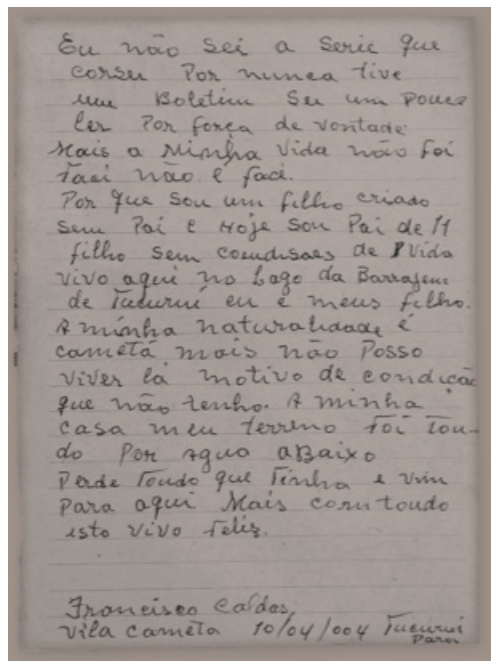 Eu não sei a serie que
corsei Por nunca tive
um Boletim Sei um pouco
ler Por força de vontade
Mais a Minha Vida não foi
facil não é facil.
Por que sou um filho criado
sem Pai e Hoje sou Pai de 11
filho sem condisoes de Vida
vivo aqui no Lago da Barrajem
de Tucuruí eu e meus filho.
A minha naturalidade é
cametá mais não Posso
viver lá motivo de condição
que não tenho. A minha
casa meu terreno foi tou-
do Por agua aBaixo
Perde Toudo que Tinha e vim
Para aqui Mais comtoudo
isto vivo feliz.
Francisco Caldas
Vila Cametá 10/04/004 Tucurui
Para